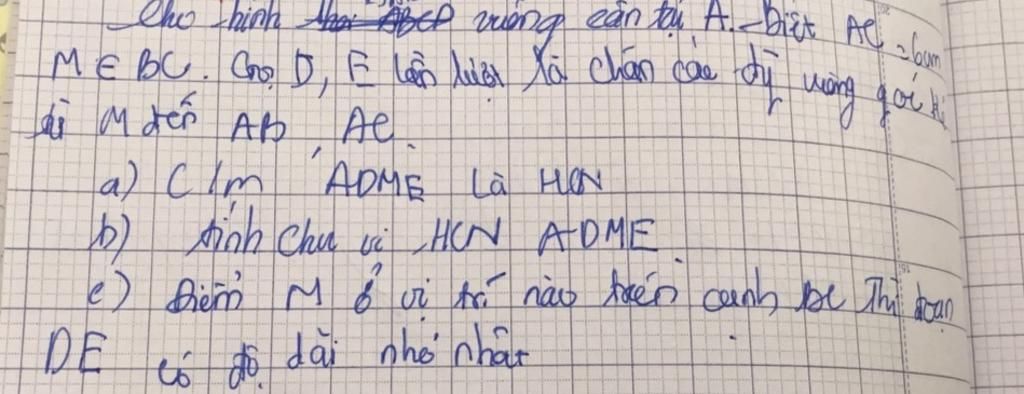 Cho hình vuông cân tại A. biết AC = 6cm
M ∈ BC. Gọi D, E lần lượt là chân các đg vuông góc kẻ
từ M đến AB, AC.
a) C/m ADME là HCN
b) tính chu vi HCN ADME.
c) Điểm M ở vị trí nào trên cạnh BC Thì đoạn
DE có độ dài nhỏ nhất